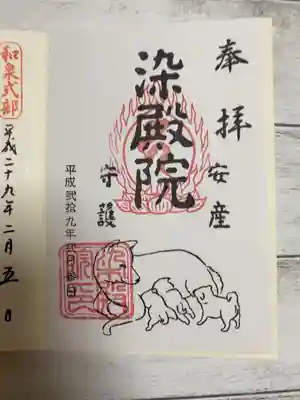 奉拝
安産
染殿院
守護
平成弐拾九年弐月
和泉式部
平成二十九年二月五日